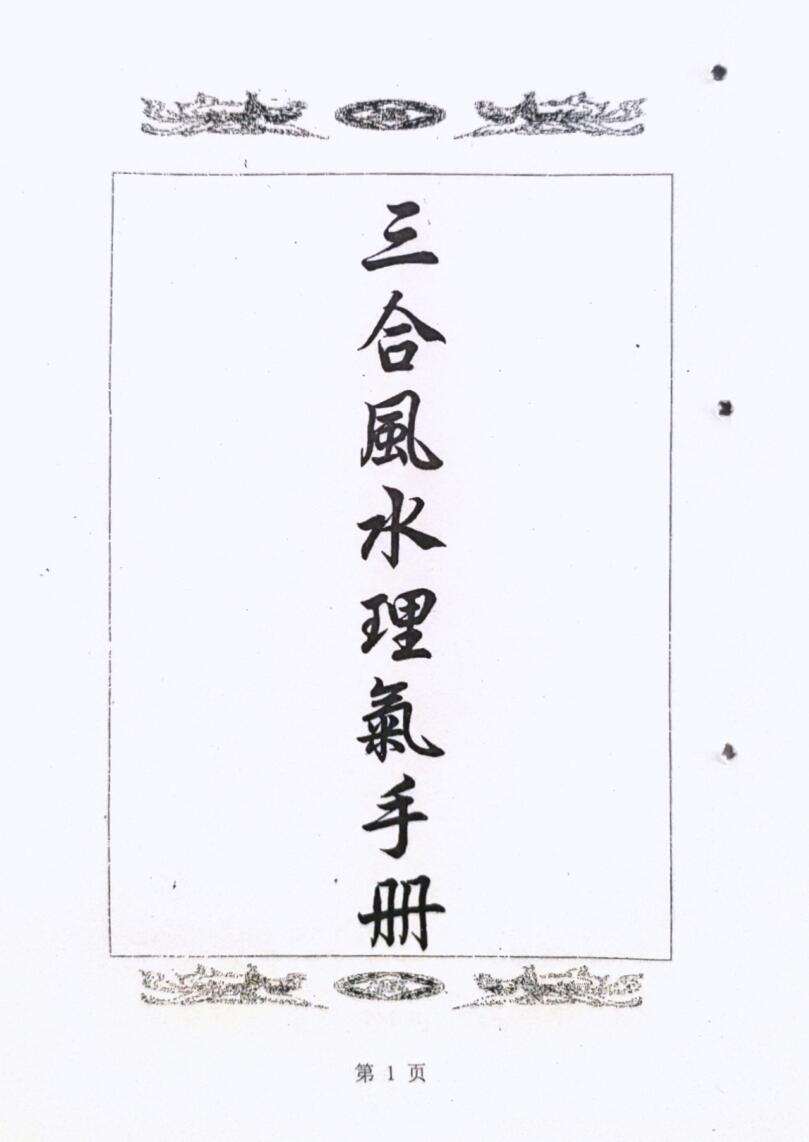 三合風水理氣手册
第 1 页